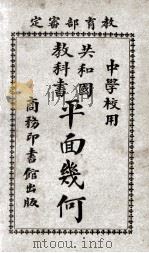 教育部審定
中學校用
共和國
教科書
平面幾何
商務印書館出版
mtoou.info
mtoou.info